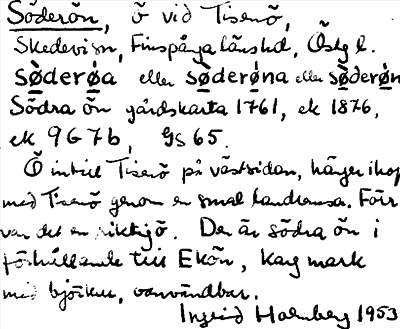 Söderön, ö vid Tisenö,
Skedevi sn, Finspånga länshd, Östg l.
sø̀derø̱a eller sø̀derø̱na eller sø̀derø̱n
Södra ön gårdskarta 1761, ek 1876,
ek 9G7b, GS65.
Ö intill Tisenö på västsidan, hänger ihop
med Tisenö genom en smal landremsa. Förr
var det en riktig ö. Den är södra ön i
förhållande till Ekön, karg mark
med björkar, oanvändbar.
Ingrid Holmberg 1953